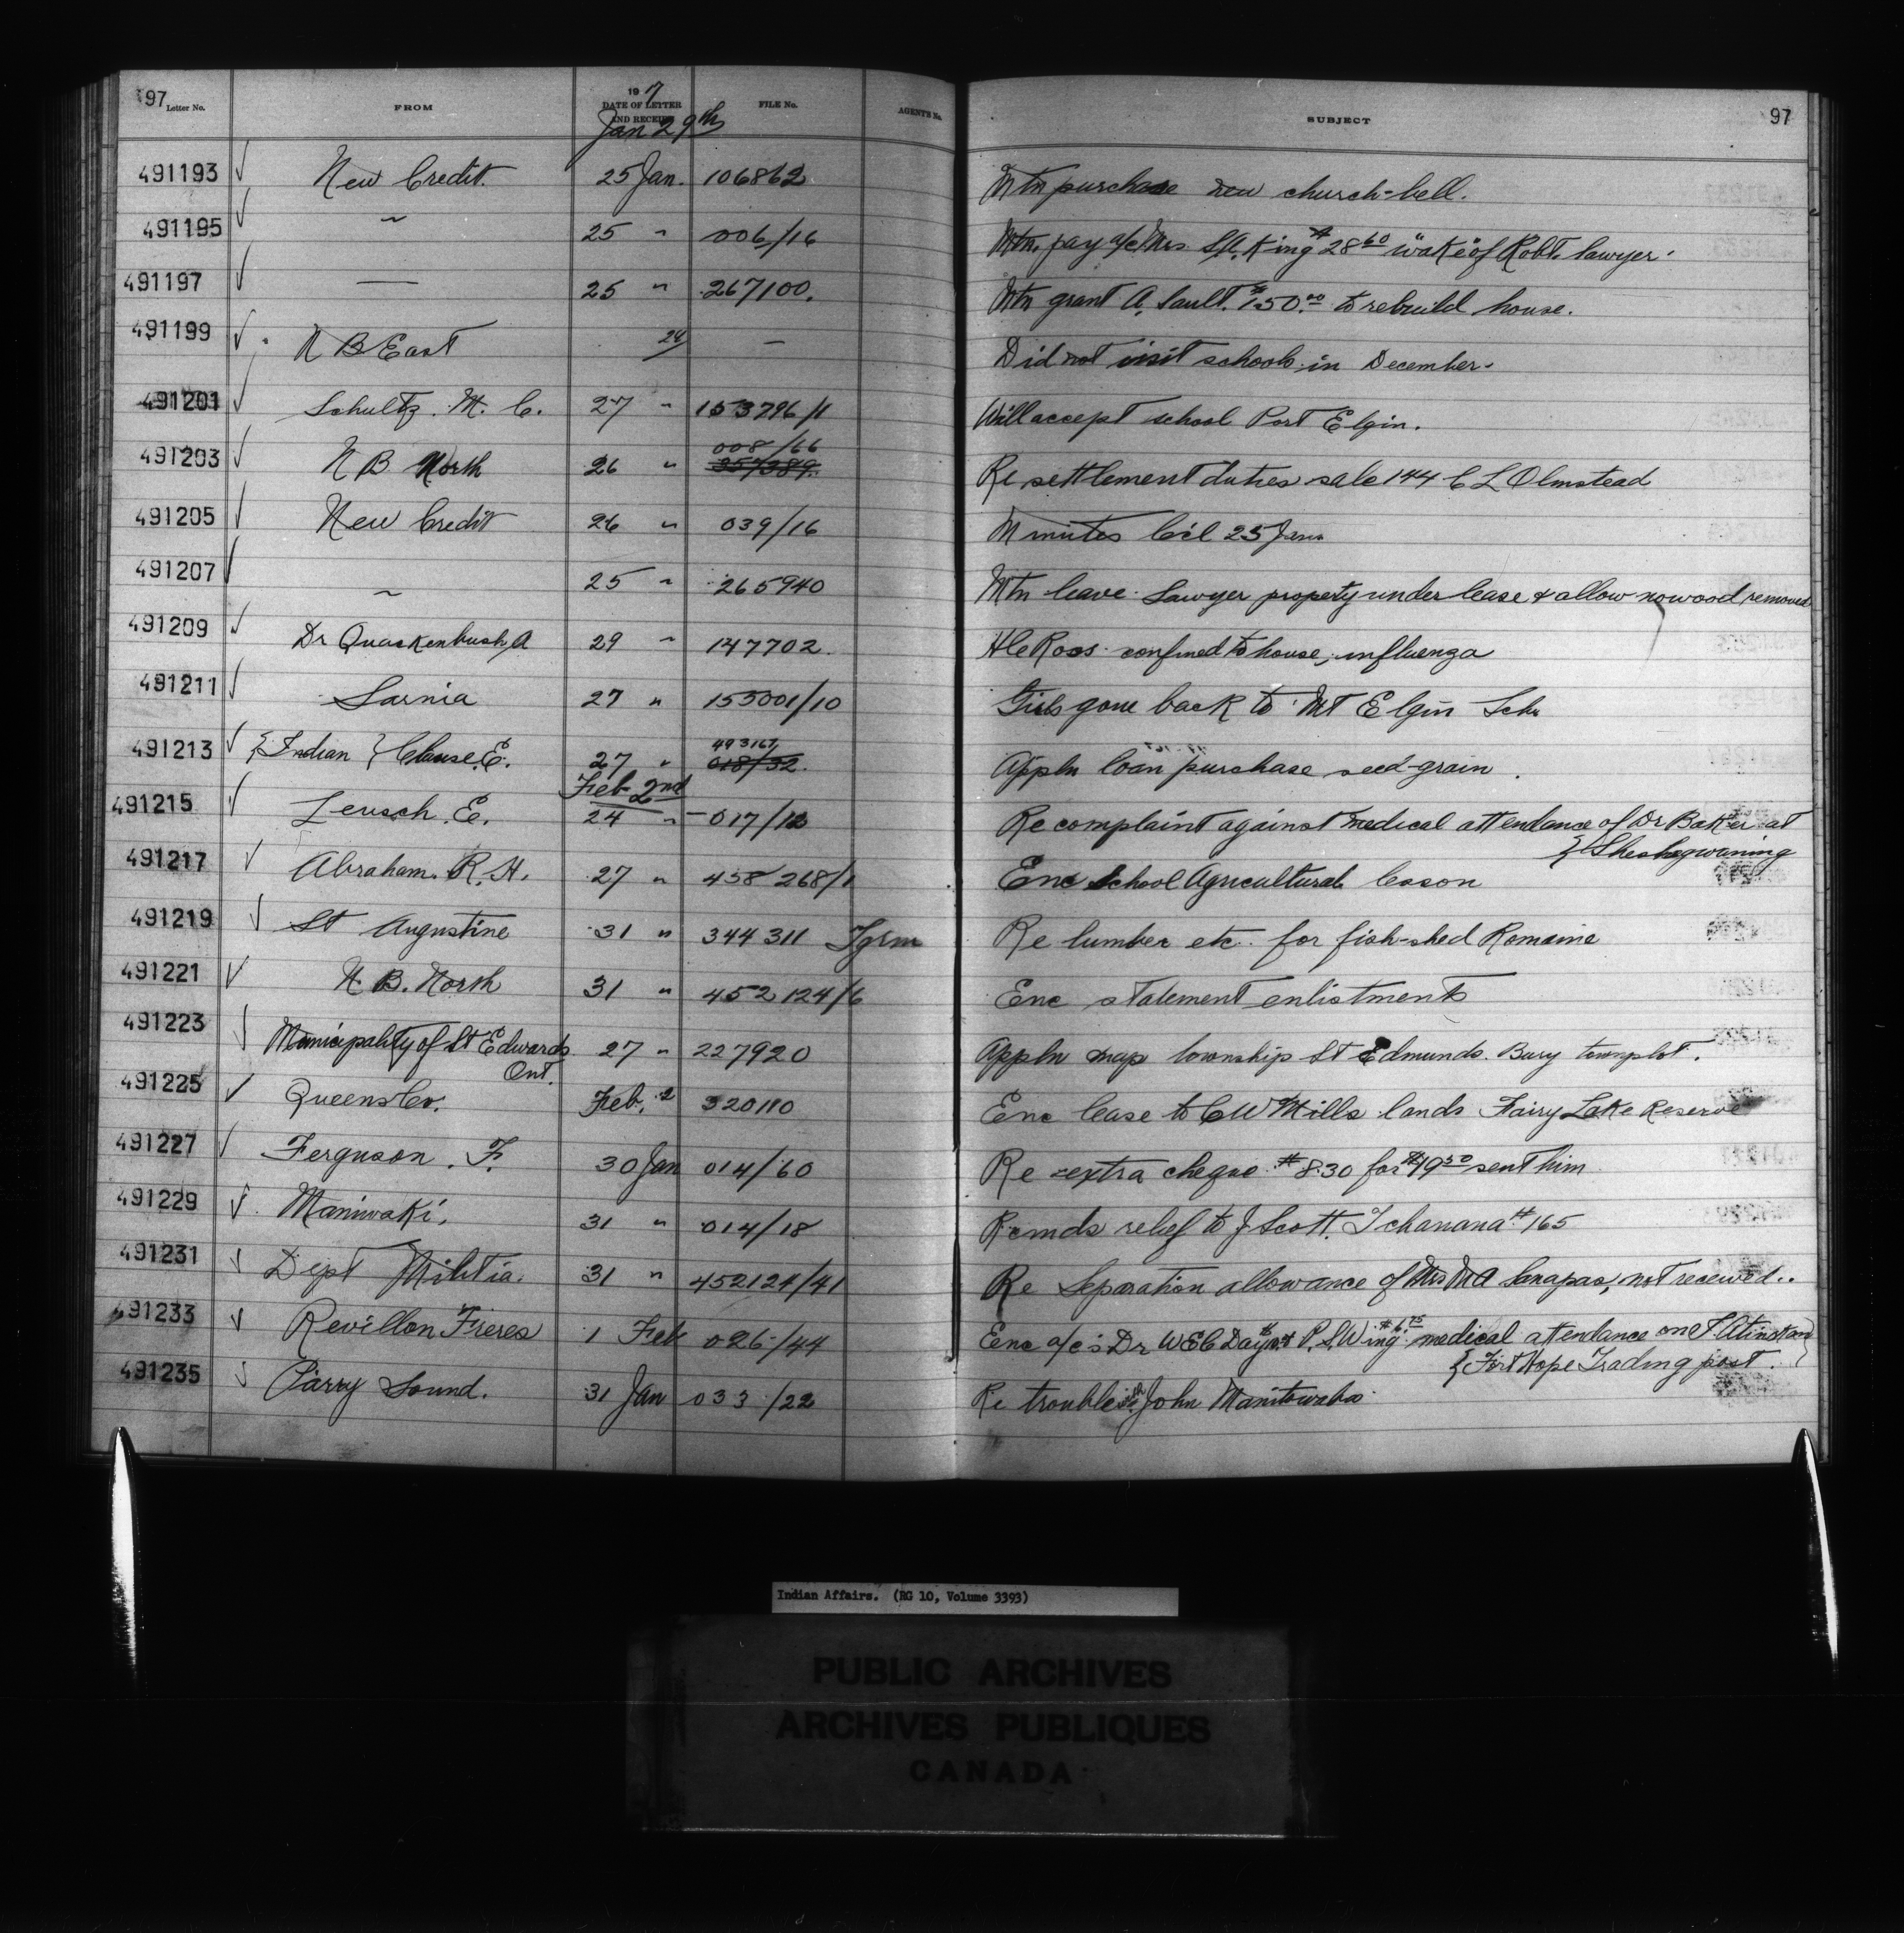 97 Letter No. FROM 19 7 DATE OF LETTER AND RECEIPT FILE No. AGENT'S No. SUBJECT 97
Jan 29th
491193 New Credit. 25 Jan. 106862 Mtn purchase new church-bell.
491195 " 25 " 006/16 Mtn. pay a/c Mrs S.A. King $28.60 "wake" of Robt. Sawyer.
491197 — 25 " 267100. Mtn grant A. Sault. $150.00 to rebuild house.
491199 N B East 24 — Did not visit schools in December.
491201 Schultz. M. C. 27 " 153796/1 Will accept school Port Elgin.
008/66
491203 N B North 26 " 257389. Re settlement duties sale 144 C L Olmstead
491205 New Credit 26 " 039/16 Minutes C'cil 25 Jan
491207 " 25 " 265940 Mtn leave Sawyer property under lease & allow no wood removed
491209 Dr Quackenbush, A 29 " 147702. H C Ross confined to house, influenza
491211 Sarnia 27 " 155001/10 Girls gone back to Mt Elgin Sch
493167
491213 {Indian} Clause, E. 27 " 018/32. Appln loan purchase seed-grain.
Feb 2nd
491215 Leusch. E. 24 " 017/12 Re complaint against medical attendance of Dr Baker at
{Sheshegwaning
491217 Abraham. R. H. 27 " 458268/1 Enc School Agricultural
491219 St Augustine 31 " 344311 Tgrm Re lumber etc. for fish-shed Romaine
491221 N. B. North 31 " 452124/6 Enc statement enlistments
491223 Municipality of St Edwards 27 " 227920 Appln map township St Edmunds. Bury townplot.
Ont.
491225 Queens Co. Feb. 2 320110 Enc lease to C W Mills lands Fairy Lake Reserve
491227 Ferguson. F. 30 Jan 014/60 Re extra cheque $8.30 for $19.50 sent him
491229 Maniwaki. 31 " 014/18 Rcmds relief to J Scott. Tchanana #165
491231 Dept Militia. 31 " 452124/41 Re Separation allowance of Mrs M A Canapas, not received..
491233 Revillon Freres 1 Feb 026/44 Enc a/c's Dr W E C Day & P. S. Wing $6.75 medical attendance on
{Fort Hope Trading post.}
491235 Parry Sound. 31 Jan 033/22 Re trouble with John Manitowaba
Indian Affairs. (RG 10, Volume 3393)
PUBLIC ARCHIVES
ARCHIVES PUBLIQUES
CANADA